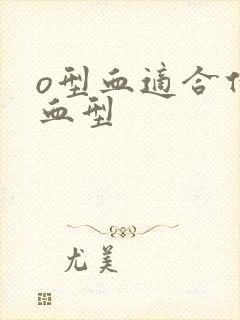 o型血適合
血型
尤美